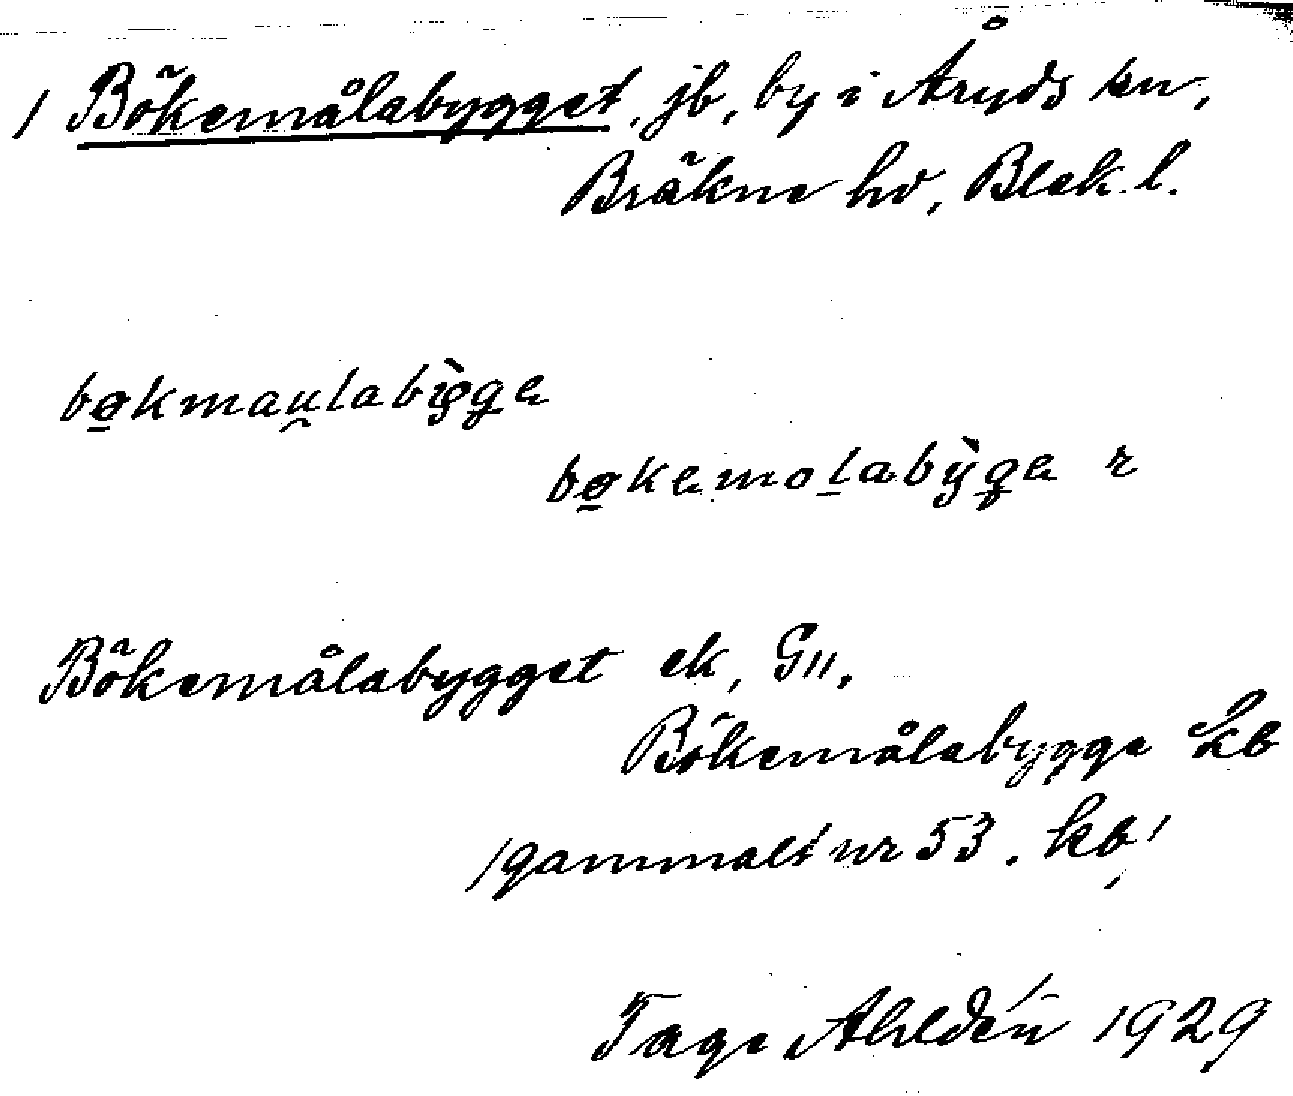 / Bökemålabygget, jb, by i Åryds sn,
Bräkne hd, Blek. l.
bøkmau̯labỳga
bøkemolabỳga r
Bökemålabygget ek, G11.
Bökemålabygge Lb
/gammalt nr 53. kb/
Tage Ahldén 1929